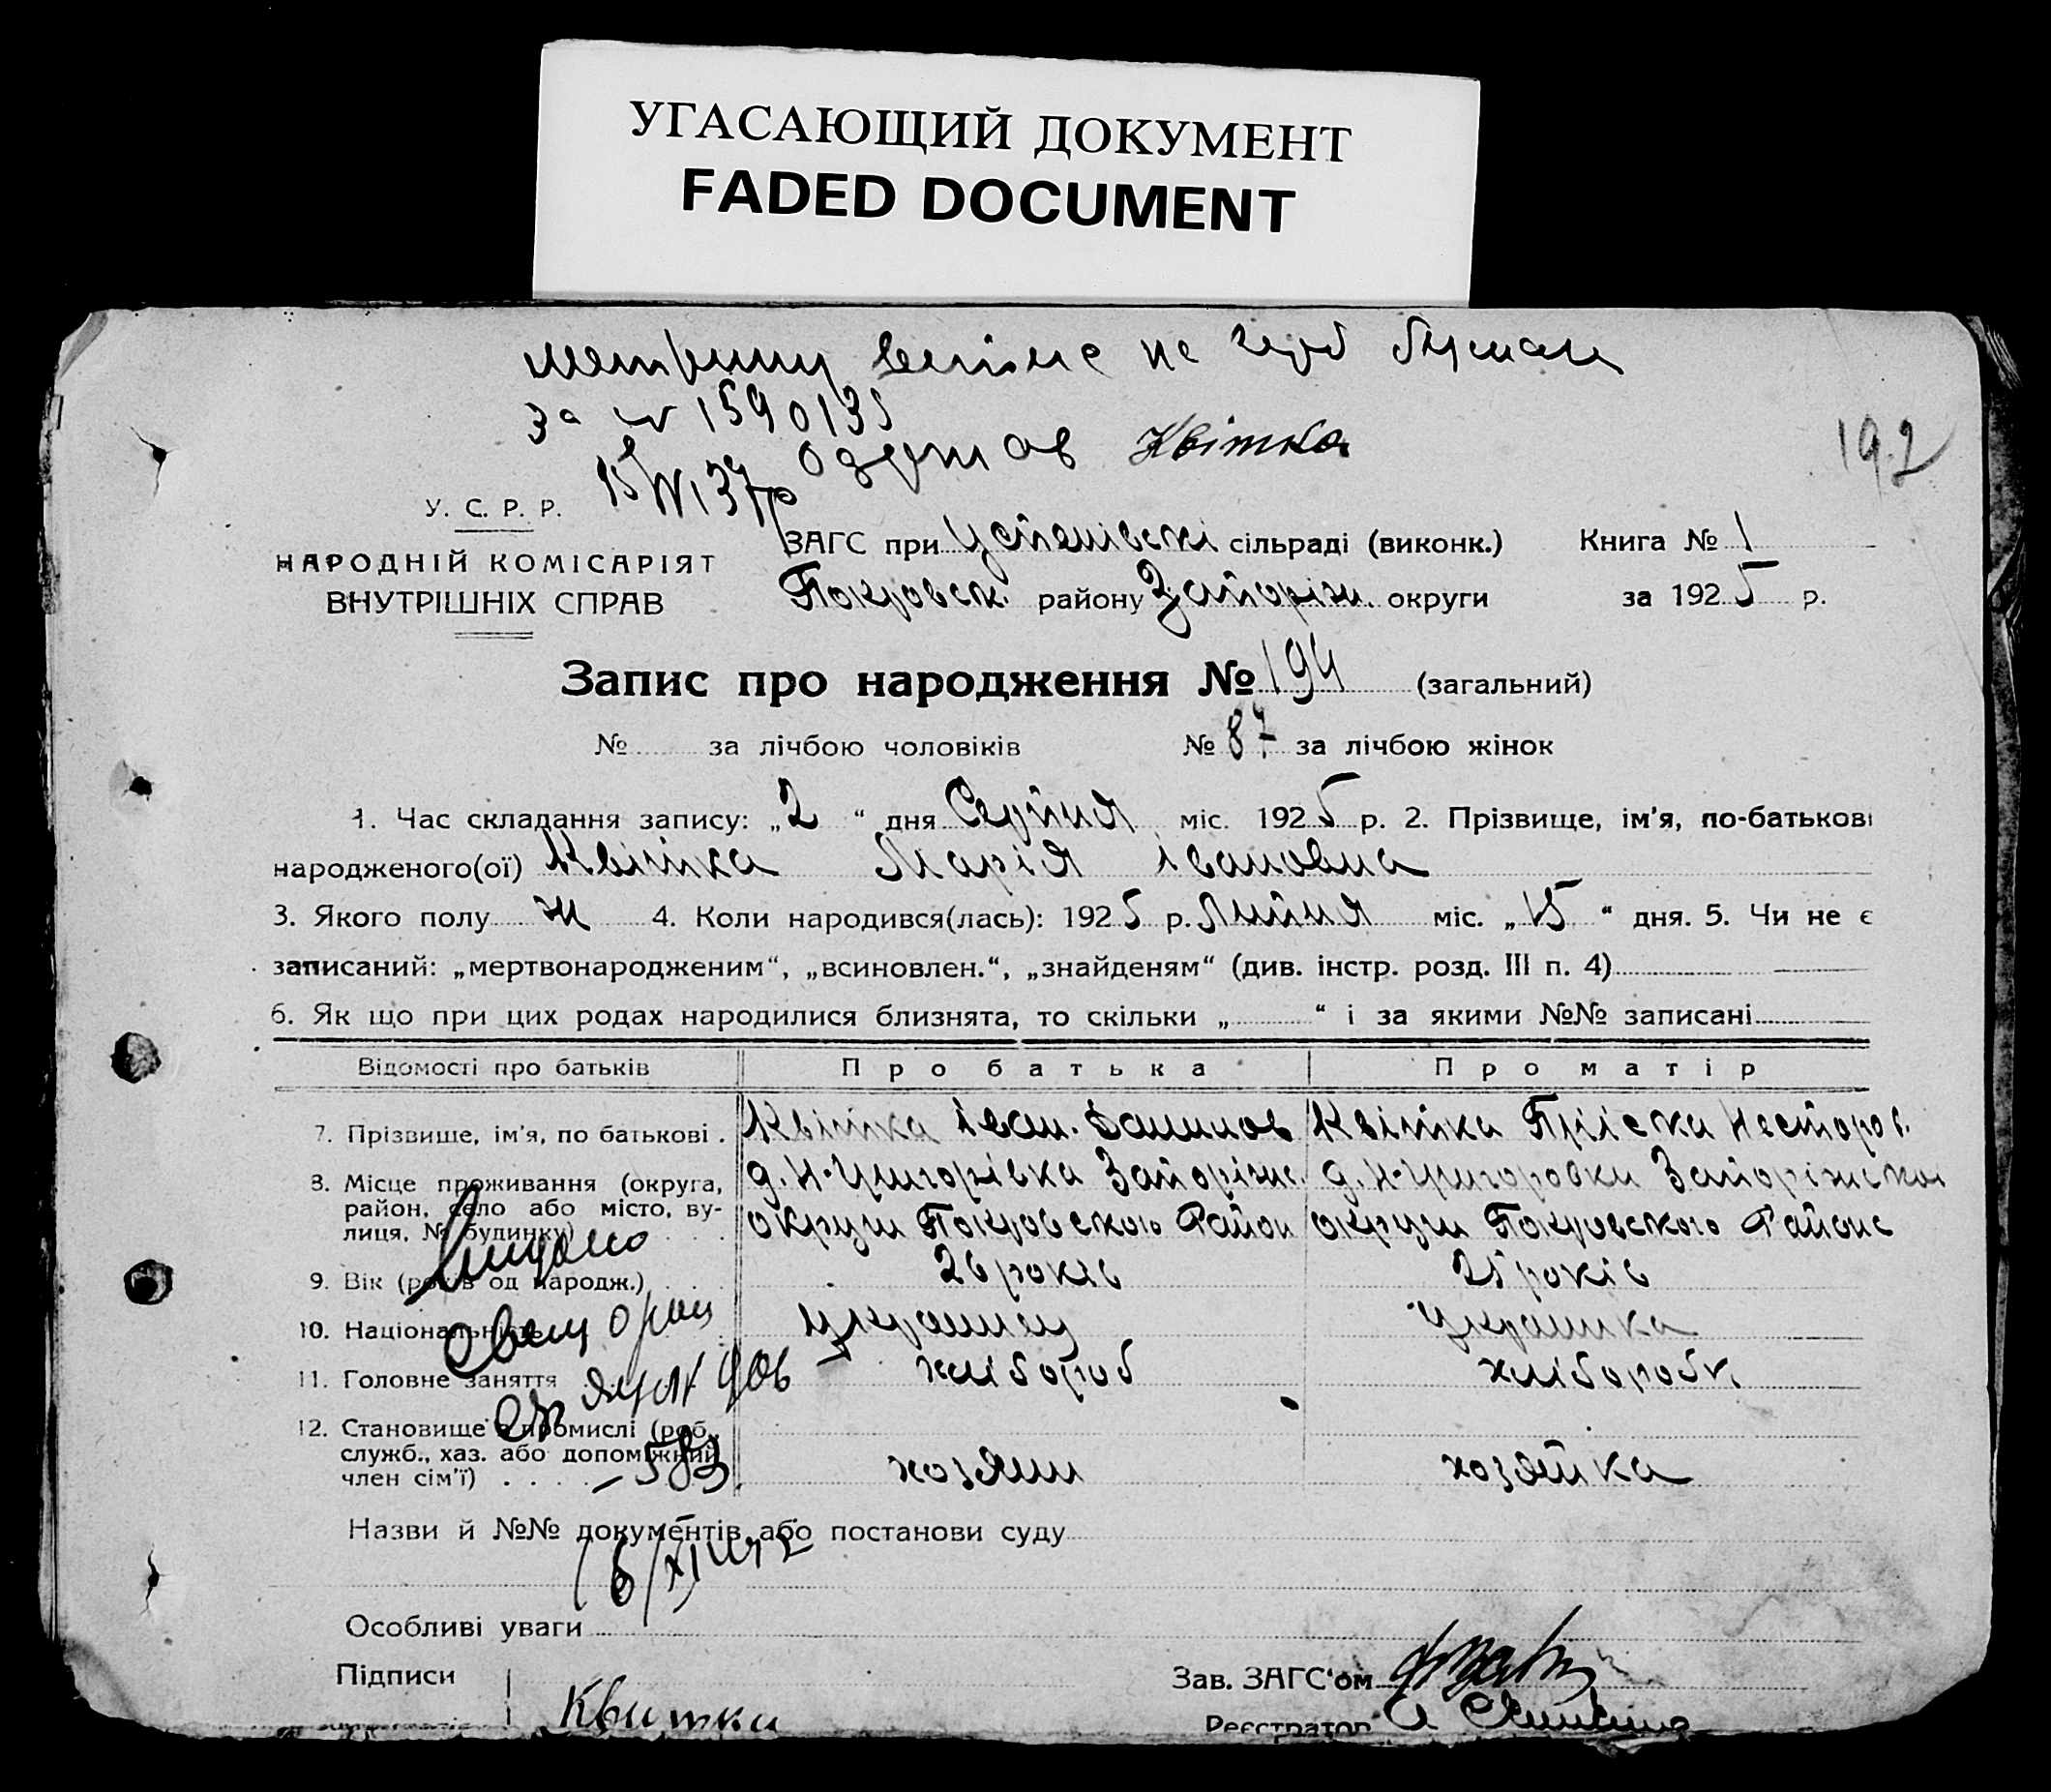 УГАСАЮЩИЙ ДОКУМЕНТ
FADED DOCUMENT
за № 1590135
Одержав Квітка
192
У. С. Р. Р.
НАРОДНІЙ КОМІСАРІЯТ
ВНУТРІШНІХ СПРАВ
ЗАГС при Успенівскі сільраді (виконк.) Книга № 1
Покровск. району Запоріж. округи за 1925 р.
Запис про народження № 194 (загальний)
№ за лічбою чоловіків № 87 за лічбою жінок
1. Час складання запису: „2“ дня Серпня міс. 1925 р. 2. Прізвище, ім'я, по-батькові
народженого(ої) Квітка Марія Івановна
3. Якого полу ж 4. Коли народився(лась): 1925 р. Липня міс. „15“ дня. 5. Чи не є
записаний: „мертвонародженим“, „всиновлен.“, „знайденям“ (див. інстр. розд. III п. 4)
6. Як що при цих родах народилися близнята, то скільки „ “ і за якими №№ записані
Відомості про батьків Про батька Про матір
7. Прізвище, ім'я, по батькові . Квітка Іван. Квітка Нестеров.
8. Місце проживання (округа, район, село або місто, вулиця, № будинку) д. Н-Григорівка Запоріжс. округи Покровского Район д. Н-Григоровки Запоріжской округи Покровского Району
9. Вік (років од народж.) 26 років 25 років
10. Національність Українец Українка
11. Головне заняття хлібороб хлібороб
12. Становище в промислі (роб., служб., хаз. або допоміжний член сім'ї) хозяин хозяйка
583
Назви й №№ документів або постанови суду
Особливі уваги
Підписи Квитки
Зав. ЗАГС'ом
Реєстратор